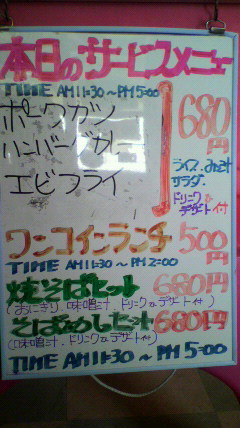 本日のサービスメニュー
TIME AM11:30 ~ PM 5:00
ポークカツ
ハンバーグカレー
エビフライ
680円
ライス、みそ汁
サラダ、
ドリンクor
デザート付
ワンコインランチ 500円
TIME AM11:30 ~ PM 2:00
焼そばセット 680円
(おにぎり、味噌汁、ドリンクorデザート付)
そばめしセット 680円
(味噌汁、ドリンクorデザート付)
TIME AM11:30 ~ PM 5:00